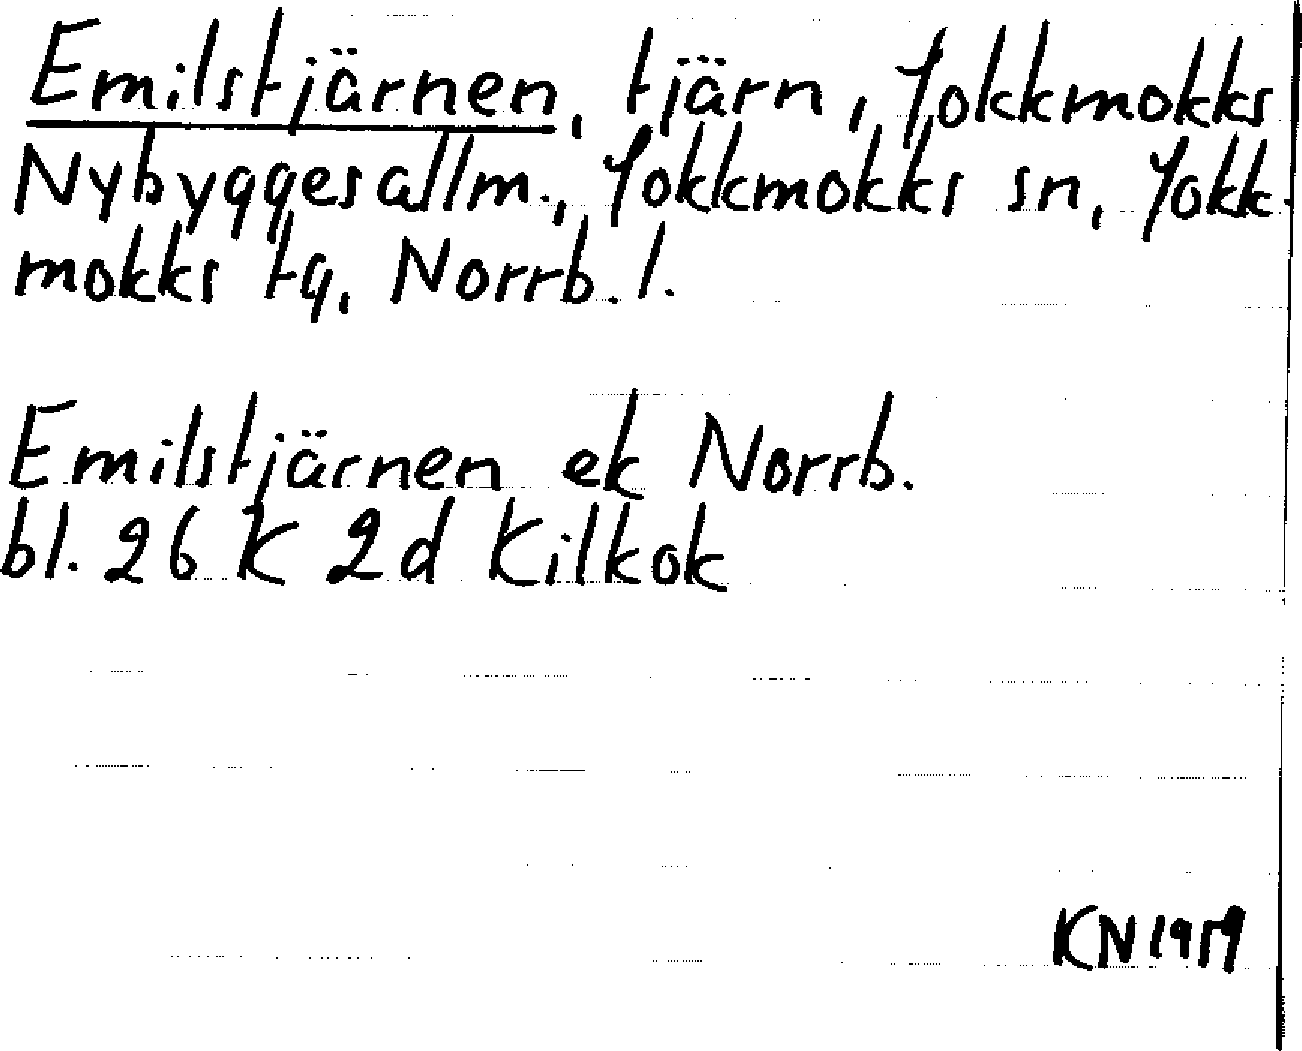 Emilstjärnen, tjärn, Jokkmokks
Nybyggesallm., Jokkmokks sn, Jokk-
mokks tg, Norrb. l.
Emilstjärnen ek Norrb.
bl. 26 K 2d Kilkok
KN 1959